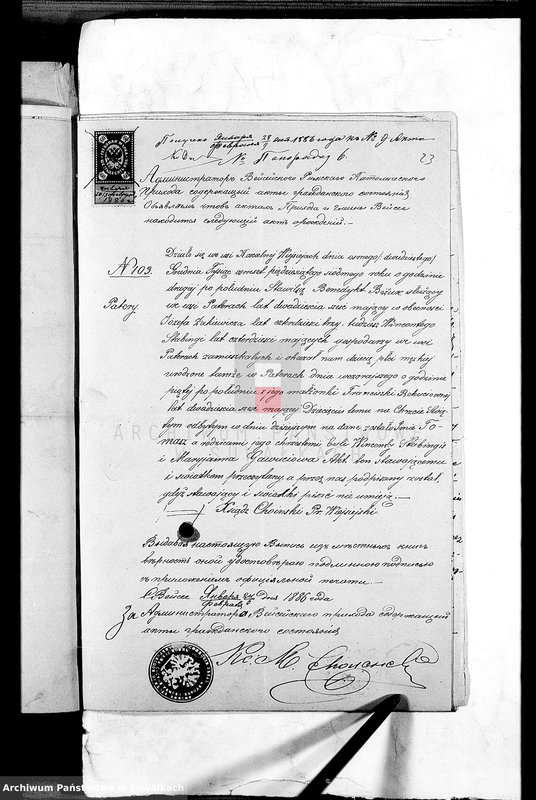 Получено Января 28 дня 1886 года къ № 9 Акта
№ Попорядку 6.
23
Администраторъ Вейсейскаго Римско Католическаго
Прихода содержащій акты гражданскаго состоянія
Объявляетъ что въ актахъ Прихода и гмины Вейсее
находится следующій актъ о рожденіи. —
№ 103.
Patory.
Działo się we wsi Kościelnej Wiejsiejach dnia osmego/dwudziestego/
Grudnia Tysiąc osmset pięćdziesiątego siodmego roku o godzinie
drugiej po południu Stawił się Benedykt służący
we wsi Paterach lat dwadzieścia sześć mający w obecności
Jozefa Zukiewicza lat czterdzieści trzy, tudzież Wincentego
Skebingi lat czterdzieści mających gospodarzy we wsi
Paterach zamieszkałych i okazał nam dziecię płci męzkiej
urodzone tamże w Paterach dnia wczorajszego o godzinie
piątej po południu z jego małżonki Franciszki
lat dwadzieścia sześć mającej Dziecięciu temu na Chrzcie Świę
tym odbytym w dniu dzisiejszym na dane zostało Imie To-
masz a rodzicami jego chrzestnemi byli Wincenty Skebingis
i Maryjanna Gawieciowa Akt ten stawającemu
i swiadkom przeczytany a przez nas podpisany został,
gdyż stawający i swiadki pisać nie umieją. —
Ksiądz Choinski Pr. Wejsiejski
Выдавая настоящую Выпись изъ местныхъ книгъ
верность оной удостоверяю подлинного подписью
съ приложеніемъ официальной печати. —
Вейсее Января Февраля дня 1886 года
За Администратора Вейсейскаго прихода содержащій
акты гражданскаго состоянія
Кс. М.
Archiwum Państwowe w Suwałkach